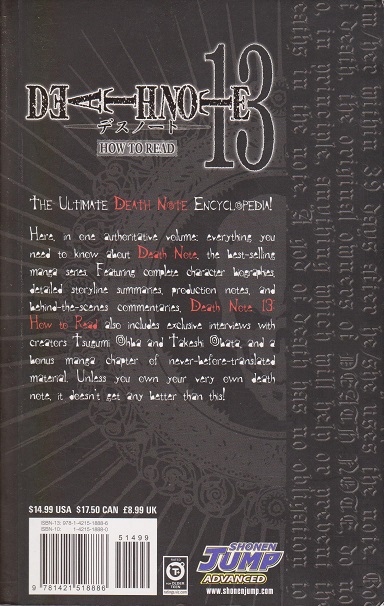 DEATH NOTE 13
デスノート
HOW TO READ
The Ultimate Death Note Encyclopedia!
Here, in one authoritative volume: everything you
need to know about Death Note, the best-selling
manga series. Featuring complete character biographies,
detailed storyline summaries, production notes, and
behind-the-scenes commentaries, Death Note 13:
How to Read also includes exclusive interviews with
creators Tsugumi Ohba and Takeshi Obata, and a
bonus manga chapter of never-before-translated
material. Unless you own your very own death
note, it doesn't get any better than this!
$14.99 USA $17.50 CAN £8.99 UK
ISBN-13: 978-1-4215-1888-6
ISBN-10: 1-4215-1888-0
51499
9 781421 518886
RATED
T+
FOR OLDER
TEEN
SHONEN
JUMP
ADVANCED
www.shonenjump.com